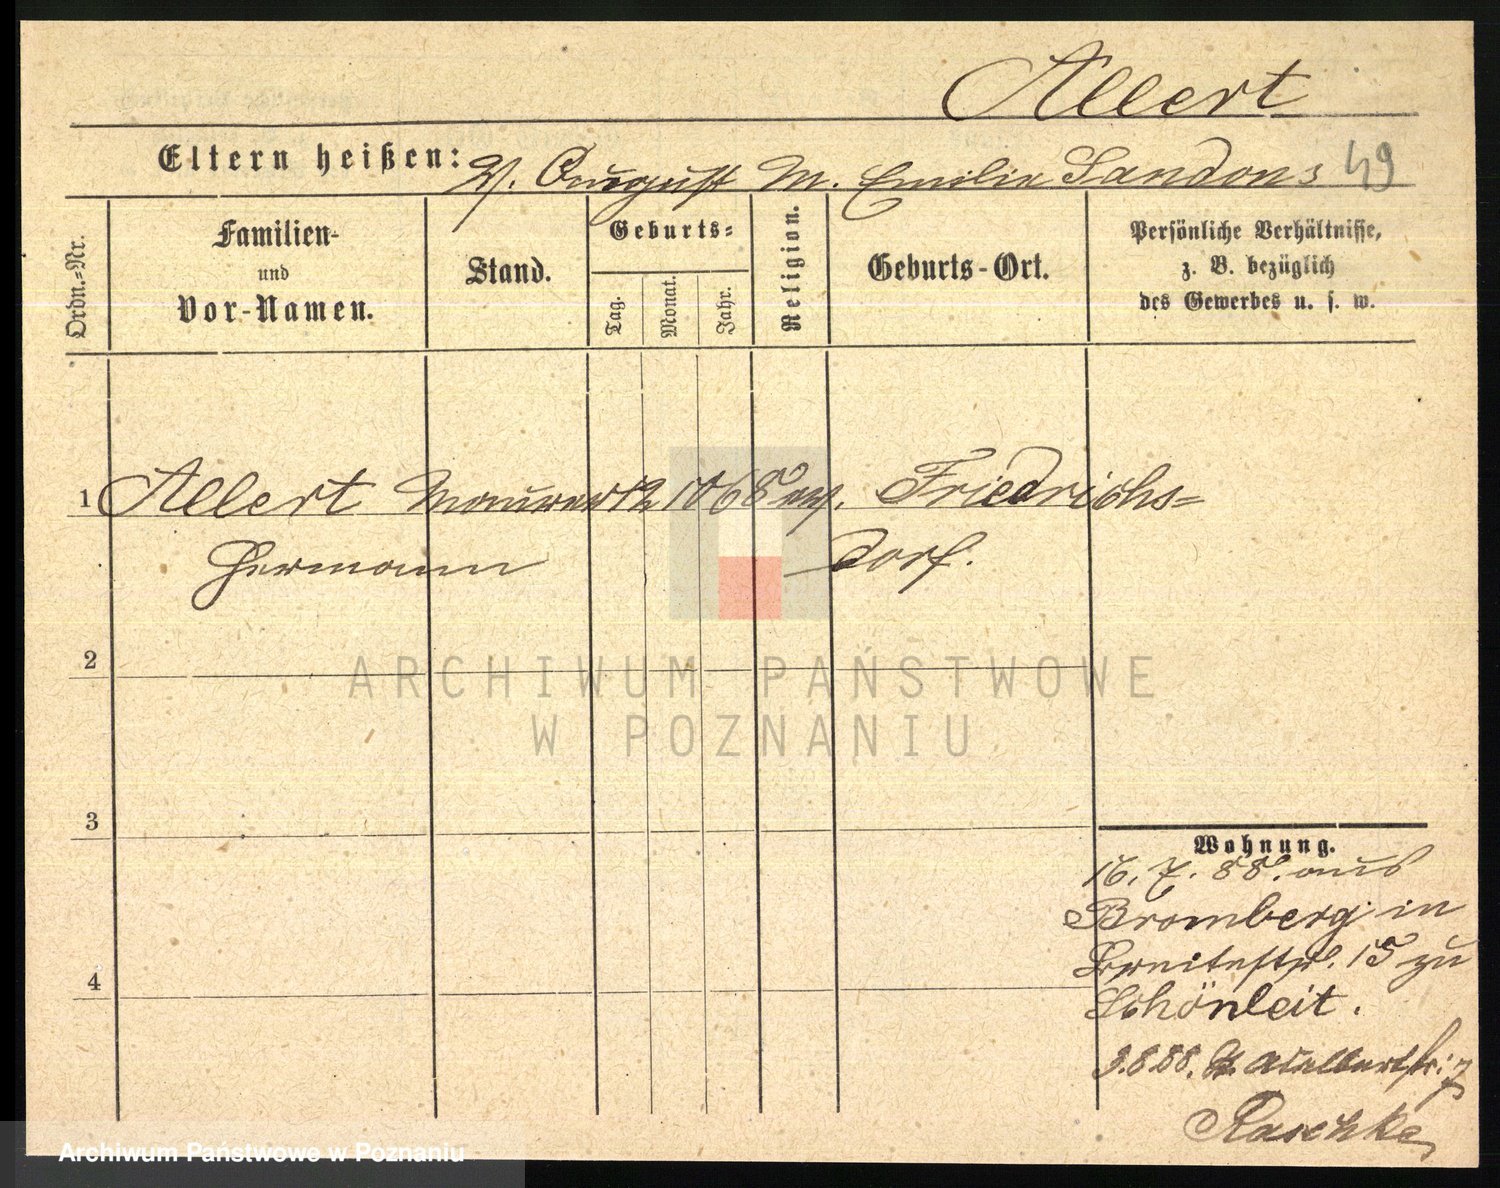 Allert
Eltern heißen: V. August M. Emilie Sandons 49
Ordn.-Nr.
Familien-
und
Vor-Namen.
Stand.
Geburts-
Tag.
Monat.
Jahr.
Religion.
Geburts-Ort.
Persönliche Verhältnisse,
z. B. bezüglich
des Gewerbes u. s. w.
1 Allert Maurer 12 10 68 ev. Friedrichs-
Hermann dorf.
2
3
4
Wohnung.
16. 7. 88. aus
Bromberg in
Breitestr. 15 zu
Schönleit.
3.8.88. St. Adalbertstr. 7
Raschke
ARCHIWUM PAŃSTWOWE
W POZNANIU
Archiwum Państwowe w Poznaniu